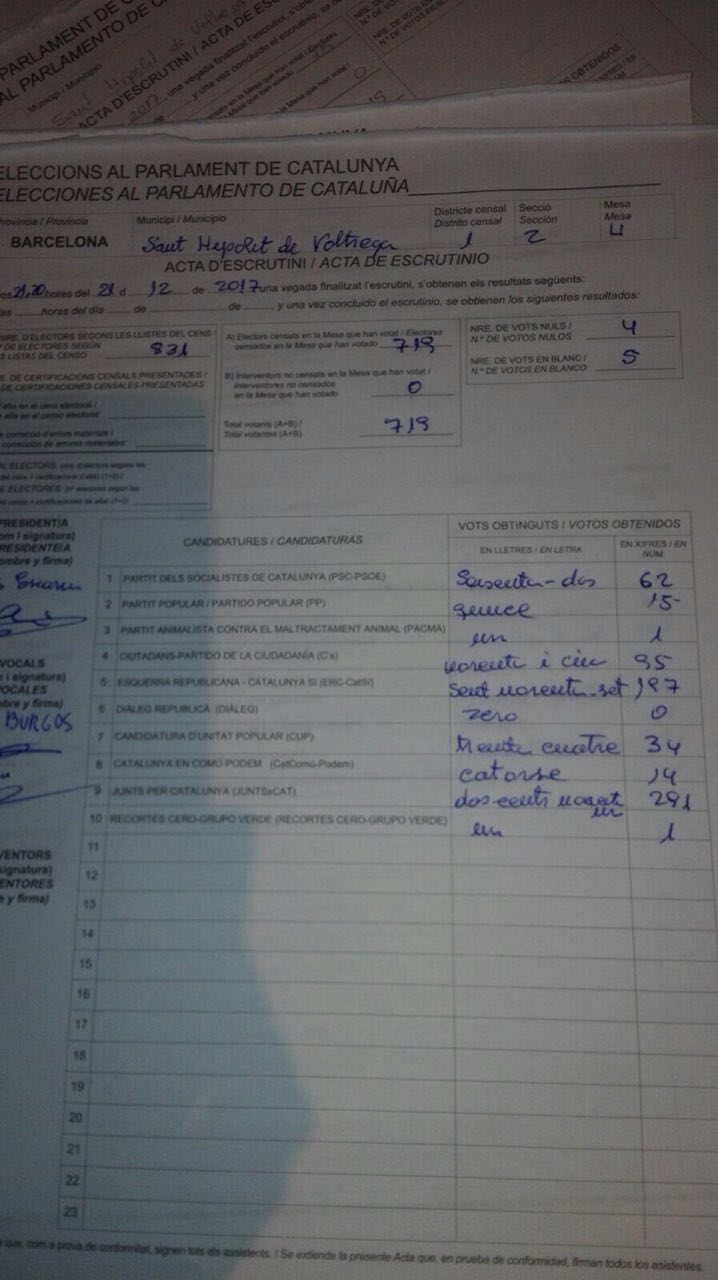 PARLAMENT DE CATAL
AL PARLAMENTO DE CATALUÑA
Municipi / Municipio
Sant Hipolit de Voltrega
ACTA D'ESCRUTINI / ACTA DE ESCRUTINIO
2017 una vegada finalitzat l'escrutini, s'obtenen
y una vez concluido el escrutinio, se
NRE. DE VOTS EN BLANC /
N.º DE VOTOS EN BLANCO
ELECCIONS AL PARLAMENT DE CATALUNYA
ELECCIONES AL PARLAMENTO DE CATALUÑA
Província / Provincia
Municipi / Municipio
Districte censal
Distrito censal
Secció
Sección
Mesa
Mesa
BARCELONA
Sant Hepolit de Voltrega
1
2
U
ACTA D'ESCRUTINI / ACTA DE ESCRUTINIO
es 21,20 hores del 21 d 12 de 2017 una vegada finalitzat l'escrutini, s'obtenen els resultats següents:
las horas del día de de y una vez concluido el escrutinio, se obtienen los siguientes resultados:
NRE. D'ELECTORS SEGONS LES LLISTES DEL CENS /
º DE ELECTORES SEGÚN
S LISTAS DEL CENSO
831
E. DE CERTIFICACIONS CENSALS PRESENTADES /
DE CERTIFICACIONES CENSALES PRESENTADAS
alta en el cens electoral /
alta en el censo electoral
correcció d'errors materials /
corrección de errores materiales
A) Electors censats en la Mesa que han votat / Electores
censados en la Mesa que han votado
719
B) Interventors no censats en la Mesa que han votat /
Interventores no censados
en la Mesa que han votado
0
Total votants (A+B) /
Total votantes (A+B)
719
NRE. DE VOTS NULS /
N.º DE VOTOS NULOS
4
NRE. DE VOTS EN BLANC /
N.º DE VOTOS EN BLANCO
5
PRESIDENT/A
om i signatura)
RESIDENTE/A
ombre y firma)
VOCALS
i signatura)
OCALES
bre y firma)
BURGOS
VENTORS
signatura)
ENTORES
e y firma)
CANDIDATURES / CANDIDATURAS
VOTS OBTINGUTS / VOTOS OBTENIDOS
EN LLETRES / EN LETRA
EN XIFRES / EN NÚM.
1 PARTIT DELS SOCIALISTES DE CATALUNYA (PSC-PSOE) Seixenta-dos 62
2 PARTIT POPULAR / PARTIDO POPULAR (PP) quince 15
3 PARTIT ANIMALISTA CONTRA EL MALTRACTAMENT ANIMAL (PACMA) un 1
4 CIUTADANS-PARTIDO DE LA CIUDADANÍA (C's) noranta i cinc 95
5 ESQUERRA REPUBLICANA - CATALUNYA SÍ (ERC-CatSí) sent noranta-set 197
6 DIÀLEG REPUBLICÀ (DIÀLEG) zero 0
7 CANDIDATURA D'UNITAT POPULAR (CUP) trenta cuatre 34
8 CATALUNYA EN COMÚ-PODEM (CatComú-Podem) catorse 14
9 JUNTS PER CATALUNYA (JUNTSxCAT) dos-cents norant un 291
10 RECORTES CERO-GRUPO VERDE (RECORTES CERO-GRUPO VERDE) un 1
11
12
13
14
15
16
17
18
19
20
21
22
23
que, com a prova de conformitat, signen tots els assistents. / Se extiende la presente Acta que, en prueba de conformidad, firman todos los asistentes.